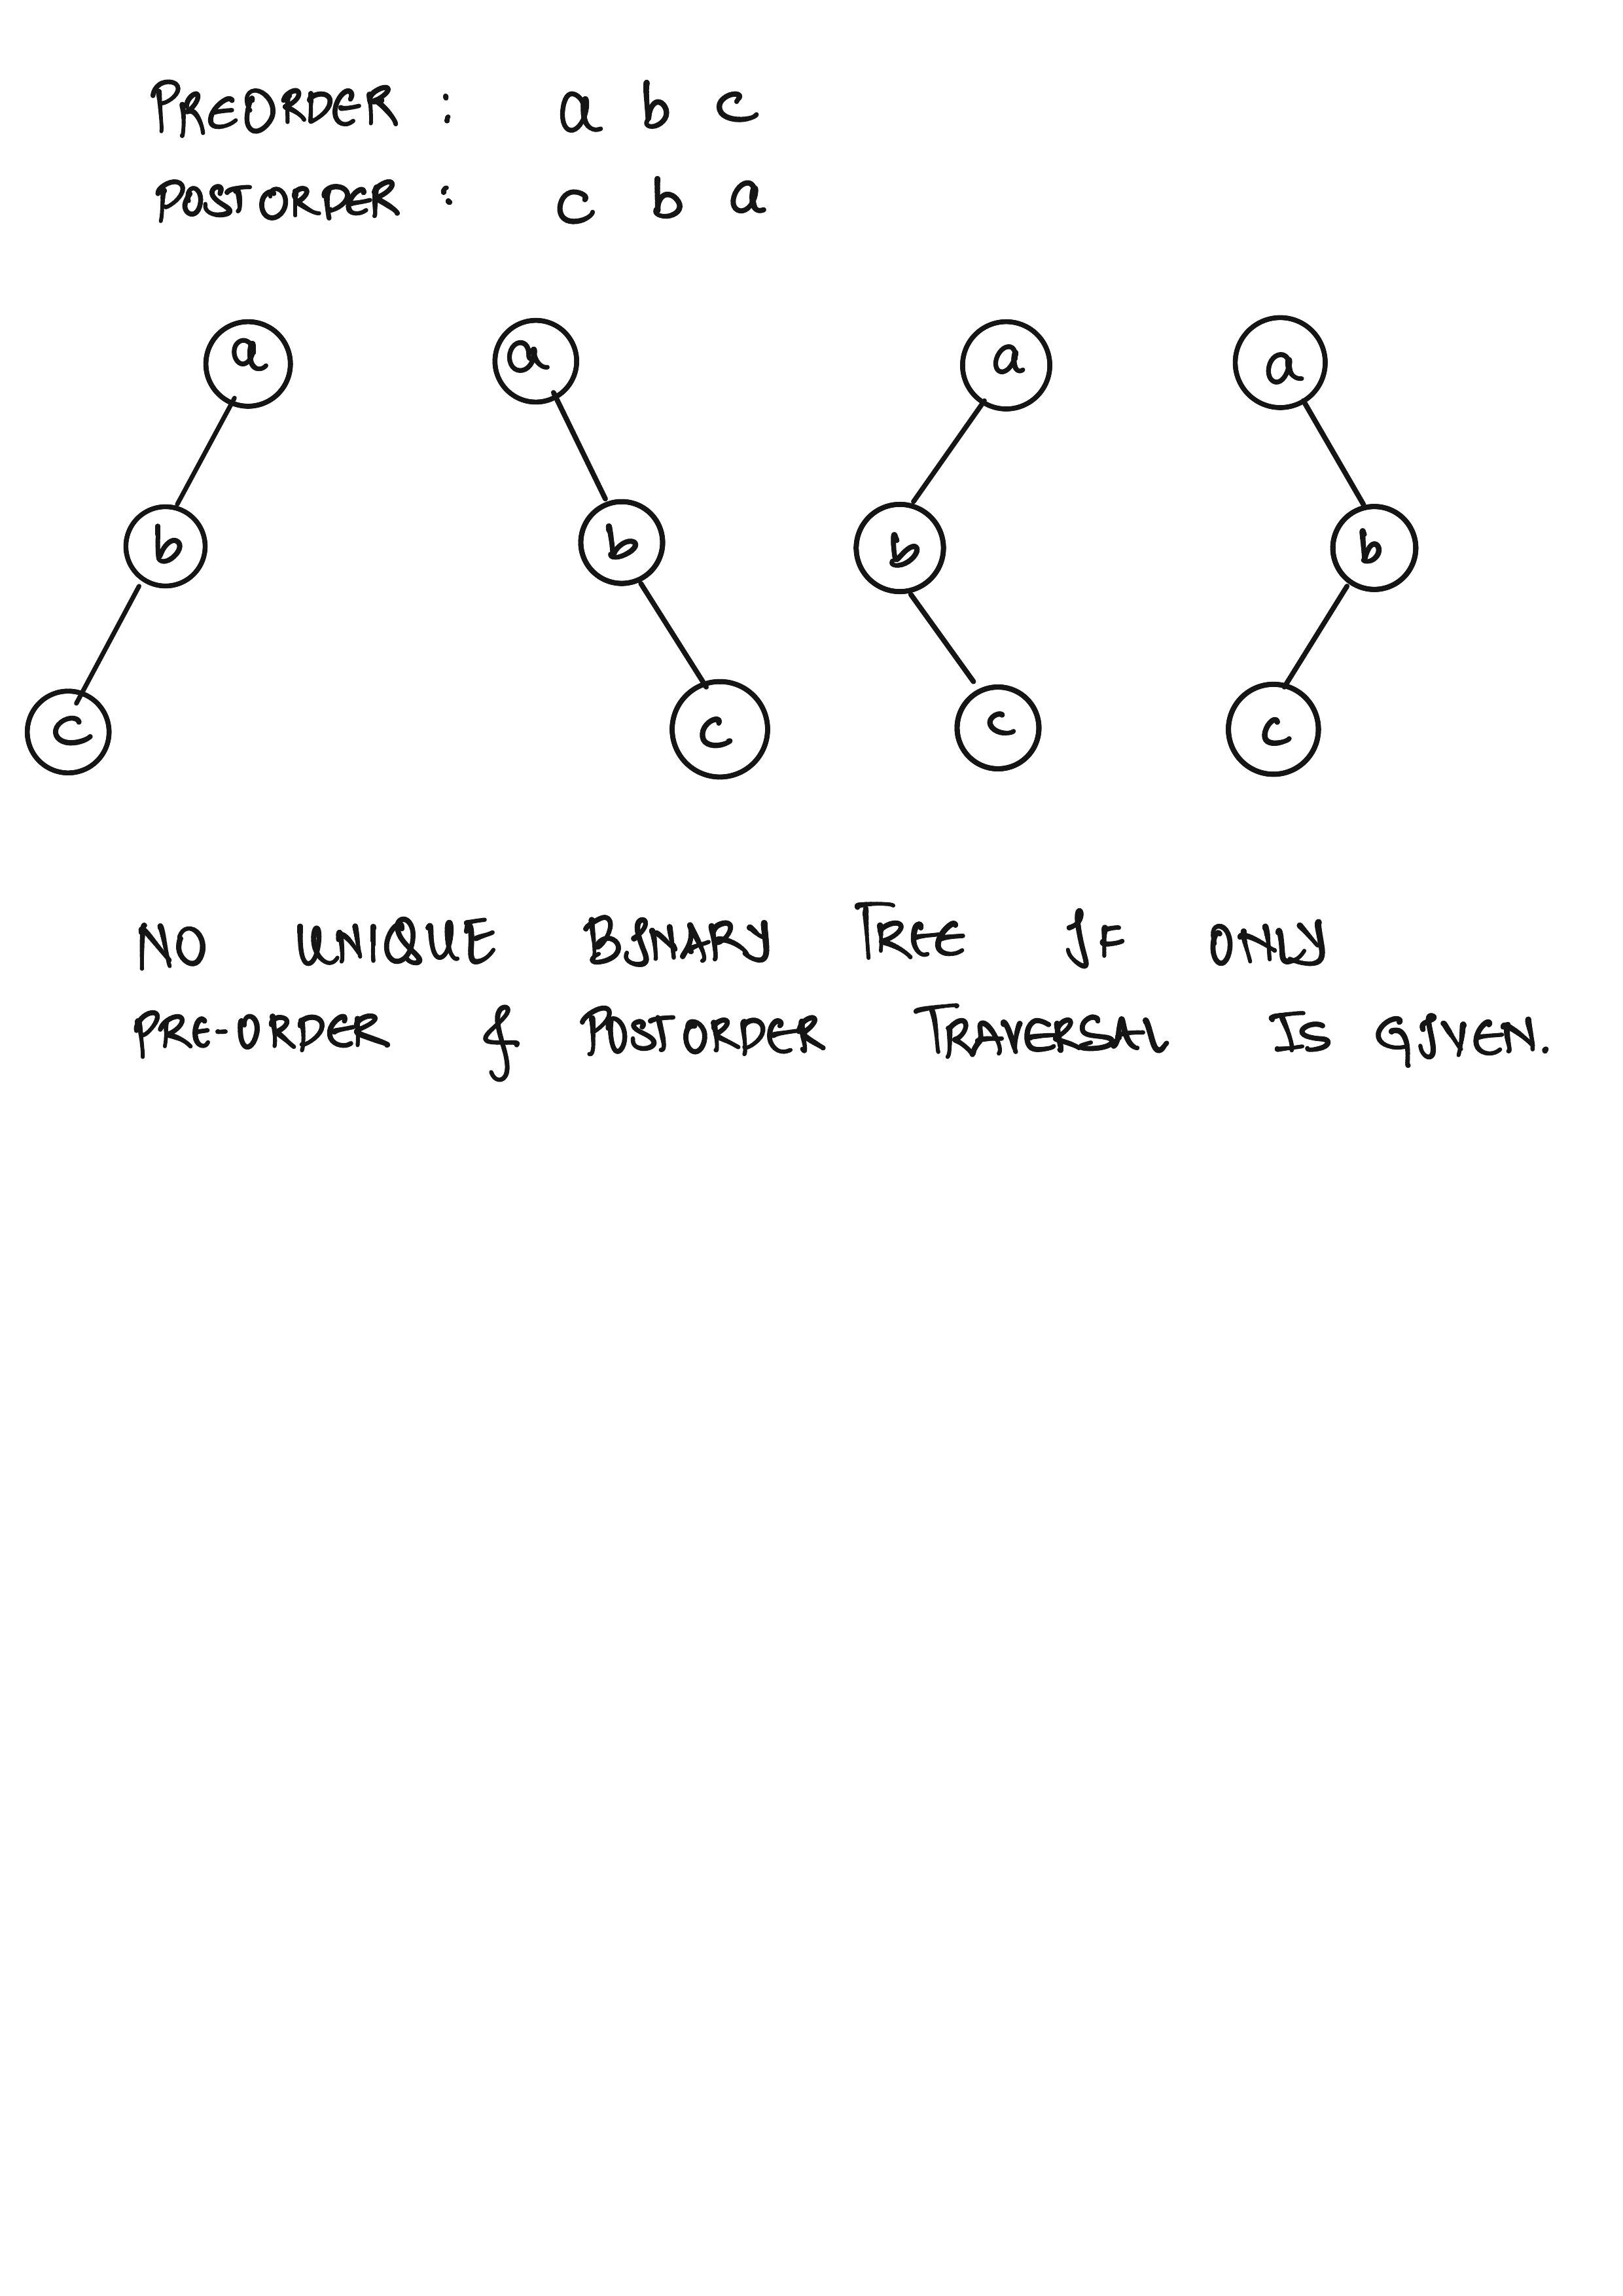 PREORDER : a b c
POSTORDER : c b a
a a a a
b b b b
c c c c
NO UNIQUE BINARY TREE IF ONLY
PRE-ORDER & POSTORDER TRAVERSAL IS GIVEN.